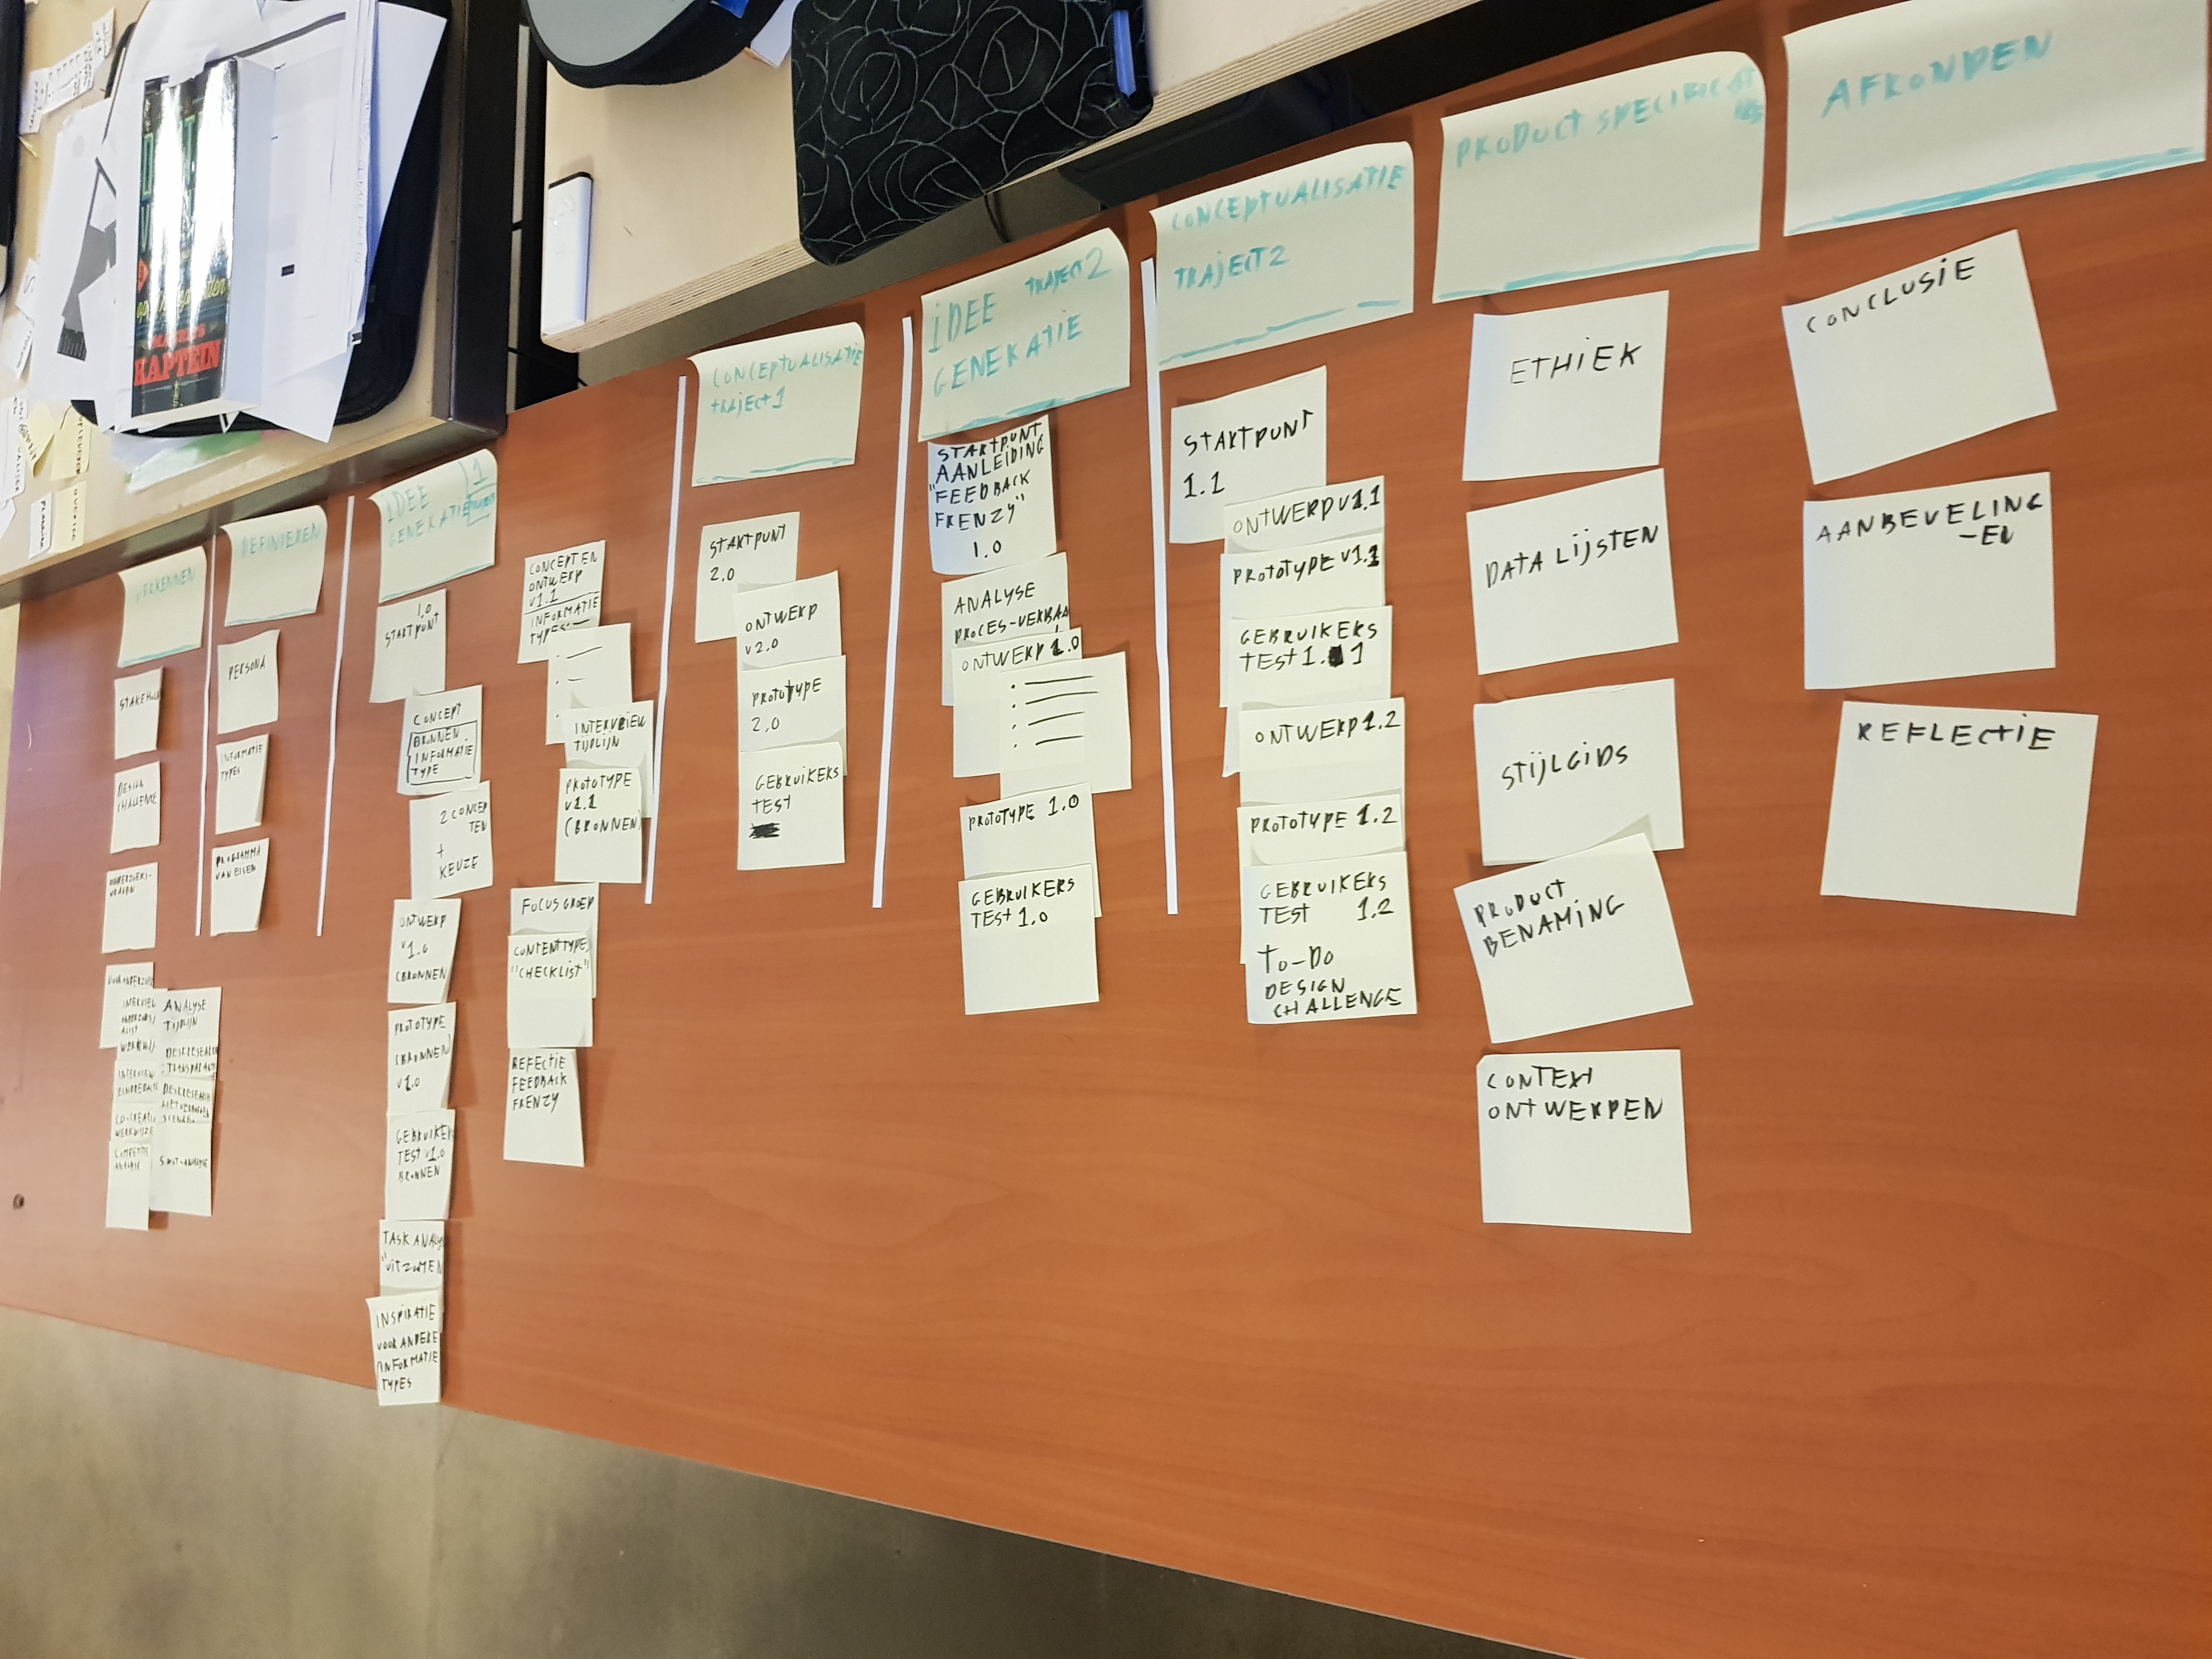 VERKENNEN
STAKEHO
DESIGN
CHALLENGE
ANALYSE
TIJDLIJN
DESKRESEARCH
DEFINIEREN
PERSONA
INFORMATIE
TYPES
PROGRAMMA
VAN EISEN
IDEE
GENERATIE
1
1.0
STARTPUNT
CONCEPT
BRONNEN.
INFORMATIE
TYPE
2 CONCEP
TEN
+
KEUZE
ONTWERP
V1.0
(BRONNEN
PROTOTYPE
V1.0
(BRONNEN)
GEBRUIKER
TEST V1.0
BRONNEN
TASK ANA
"UITZOMEN
INSPIRATIE
VOOR ANDERE
INFORMATIE
TYPES
CONCEPTEN
ONTWERP
V1.1
INFORMATIE
TYPES
INTERVIEW
TIJDLIJN
PROTOTYPE
V1.1
(BRONNEN)
FOCUSGROEP
CONTENTTYPE
"CHECKLIST"
REFECTIE
FEEDBACK
FRENZY
CONCEPTUALISATIE
TRAJECT 1
STARTPUNT
2.0
ONTWERP
V2.0
PROTOTYPE
2.0
GEBRUIKERS
TEST
IDEE TRAJECT 2
GENERATIE
STARTPUNT
AANLEIDING
"FEEDBACK
FRENZY"
1.0
ANALYSE
PROCES-VERBAA
ONTWERP 1.0
PROTOTYPE 1.0
GEBRUIKERS
TEST 1.0
CONCEPTUALISATIE
TRAJECT 2
STARTPUNT
1.1
ONTWERP V1.1
PROTOTYPE V1.1
GEBRUIKERS
TEST 1.1
ONTWERP 1.2
PROTOTYPE 1.2
GEBRUIKERS
TEST 1.2
TO-DO
DESIGN
CHALLENGE
PRODUCT SPECIFICAT
IES
ETHIEK
DATA LIJSTEN
STIJLGIDS
PRODUCT
BENAMING
CONTEXT
ONTWERPEN
AFRONDEN
CONCLUSIE
AANBEVELING
-EN
REFLECTIE